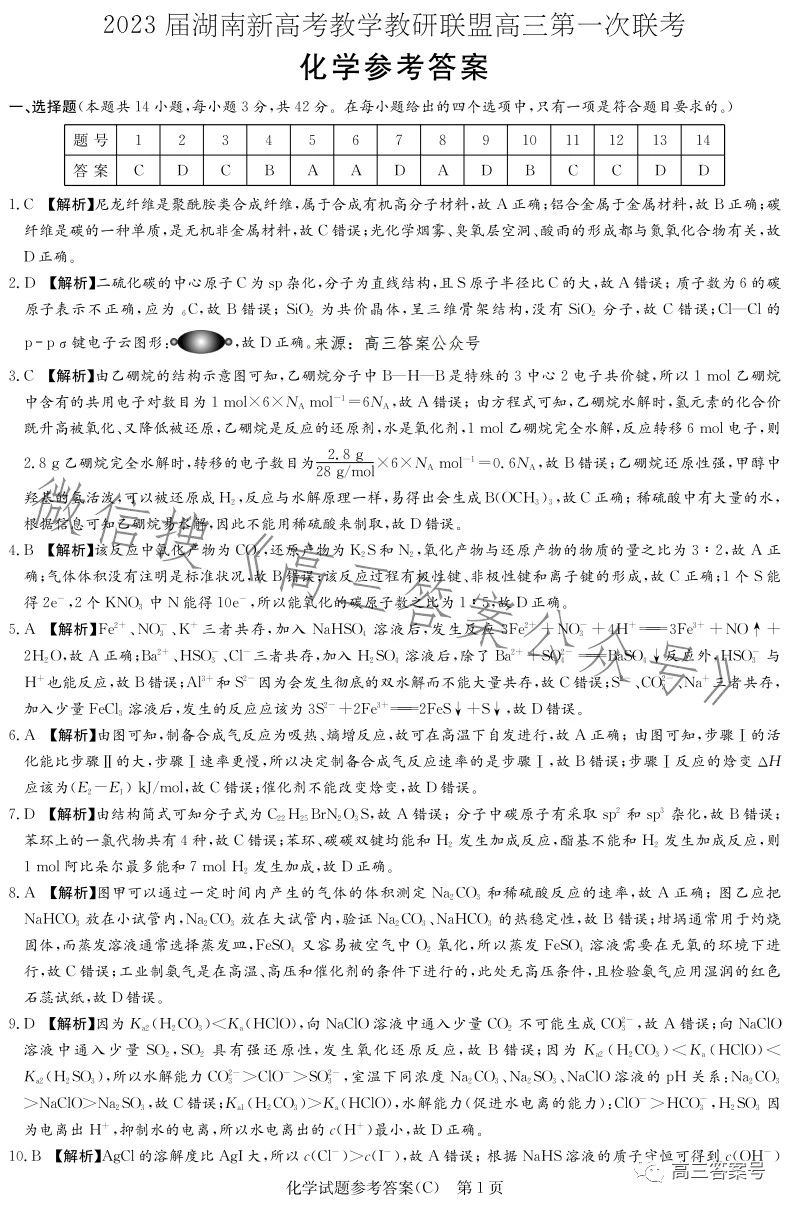 2023 届湖南新高考教学教研联盟高三第一次联考
化学参考答案
一、选择题(本题共 14 小题,每小题 3 分,共 42 分。在每小题给出的四个选项中,只有一项是符合题目要求的。)
题 号 1 2 3 4 5 6 7 8 9 10 11 12 13 14
答 案 C D C B A A D A D B C C D D
1. C 【解析】尼龙纤维是聚酰胺类合成纤维,属于合成有机高分子材料,故 A 正确;铝合金属于金属材料,故 B 正确;碳
纤维是碳的一种单质,是无机非金属材料,故 C 错误;光化学烟雾、臭氧层空洞、酸雨的形成都与氮氧化合物有关,故
D 正确。
2. D 【解析】二硫化碳的中心原子 C 为 sp 杂化,分子为直线结构,且 S 原子半径比 C 的大,故 A 错误;质子数为 6 的碳
原子表示不正确,应为 ₆C,故 B 错误;SiO₂ 为共价晶体,呈三维骨架结构,没有 SiO₂ 分子,故 C 错误;Cl—Cl 的
p-p σ 键电子云图形: ,故 D 正确。来源:高三答案公众号
3. C 【解析】由乙硼烷的结构示意图可知,乙硼烷分子中 B—H—B 是特殊的 3 中心 2 电子共价键,所以 1 mol 乙硼烷
中含有的共用电子对数目为 1 mol×6×N_A mol⁻¹=6N_A,故 A 错误;由方程式可知,乙硼烷水解时,氢元素的化合价
既升高被氧化、又降低被还原,乙硼烷是反应的还原剂,水是氧化剂,1 mol 乙硼烷完全水解,反应转移 6 mol 电子,则
2.8 g 乙硼烷完全水解时,转移的电子数目为 2.8 g/28 g/mol ×6×N_A mol⁻¹=0.6N_A,故 B 错误;乙硼烷还原性强,甲醇中
羟基的氢活泼,可以被还原成 H₂,反应与水解原理一样,易得出会生成 B(OCH₃)₃,故 C 正确;稀硫酸中有大量的水,
根据信息可知乙硼烷易水解,因此不能用稀硫酸来制取,故 D 错误。
4. B 【解析】该反应中氧化产物为 CO₂,还原产物为 K₂S 和 N₂,氧化产物与还原产物的物质的量之比为 3∶2,故 A 正
确;气体体积没有注明是标准状况,故 B 错误;该反应过程有极性键、非极性键和离子键的形成,故 C 正确;1 个 S 能
得 2e⁻,2 个 KNO₃ 中 N 能得 10e⁻,所以能氧化的碳原子数之比为 1∶5,故 D 正确。
5. A 【解析】Fe²⁺、NO₃⁻、K⁺ 三者共存,加入 NaHSO₄ 溶液后,发生反应 3Fe²⁺+NO₃⁻+4H⁺══3Fe³⁺+NO↑+
2H₂O,故 A 正确;Ba²⁺、HSO₃⁻、Cl⁻三者共存,加入 H₂SO₄ 溶液后,除了 Ba²⁺+SO₄²⁻══BaSO₄↓反应外,HSO₃⁻ 与
H⁺也能反应,故 B 错误;Al³⁺和 S²⁻因为会发生彻底的双水解而不能大量共存,故 C 错误;S²⁻、CO₃²⁻、Na⁺三者共存,
加入少量 FeCl₃ 溶液后,发生的反应应该为 3S²⁻+2Fe³⁺══2FeS↓+S↓,故 D 错误。
6. A 【解析】由图可知,制备合成气反应为吸热、熵增反应,故可在高温下自发进行,故 A 正确;由图可知,步骤Ⅰ的活
化能比步骤Ⅱ的大,步骤Ⅰ速率更慢,所以决定制备合成气反应速率的是步骤Ⅰ,故 B 错误;步骤Ⅰ反应的焓变 ΔH
应该为(E₂−E₁) kJ/mol,故 C 错误;催化剂不能改变焓变,故 D 错误。
7. D 【解析】由结构简式可知分子式为 C₂₂H₂₅BrN₂O₃S,故 A 错误;分子中碳原子有采取 sp² 和 sp³ 杂化,故 B 错误;
苯环上的一氯代物共有 4 种,故 C 错误;苯环、碳碳双键均能和 H₂ 发生加成反应,酯基不能和 H₂ 发生加成反应,则
1 mol 阿比朵尔最多能和 7 mol H₂ 发生加成,故 D 正确。
8. A 【解析】图甲可以通过一定时间内产生的气体的体积测定 Na₂CO₃ 和稀硫酸反应的速率,故 A 正确;图乙应把
NaHCO₃ 放在小试管内,Na₂CO₃ 放在大试管内,验证 Na₂CO₃、NaHCO₃ 的热稳定性,故 B 错误;坩埚通常用于灼烧
固体,而蒸发溶液通常选择蒸发皿,FeSO₄ 又容易被空气中 O₂ 氧化,所以蒸发 FeSO₄ 溶液需要在无氧的环境下进
行,故 C 错误;工业制氨气是在高温、高压和催化剂的条件下进行的,此处无高压条件,且检验氨气应用湿润的红色
石蕊试纸,故 D 错误。
9. D 【解析】因为 Kₐ₂(H₂CO₃)<Kₐ(HClO),向 NaClO 溶液中通入少量 CO₂ 不可能生成 CO₃²⁻,故 A 错误;向 NaClO
溶液中通入少量 SO₂,SO₂ 具有强还原性,发生氧化还原反应,故 B 错误;因为 Kₐ₂(H₂CO₃)<Kₐ(HClO)<
Kₐ₂(H₂SO₃),所以水解能力 CO₃²⁻>ClO⁻>SO₃²⁻,室温下同浓度 Na₂CO₃、Na₂SO₃、NaClO 溶液的 pH 关系:Na₂CO₃
>NaClO>Na₂SO₃,故 C 错误;Kₐ₁(H₂CO₃)>Kₐ(HClO),水解能力(促进水电离的能力):ClO⁻>HCO₃⁻,H₂SO₃ 因
为电离出 H⁺,抑制水的电离,所以水电离出的 c(H⁺)最小,故 D 正确。
10. B 【解析】AgCl 的溶解度比 AgI 大,所以 c(Cl⁻)>c(I⁻),故 A 错误;根据 NaHS 溶液的质子守恒可得到 c(OH⁻)
化学试题参考答案(C) 第 1 页
微信搜《高三答案公众号》
高三答案号